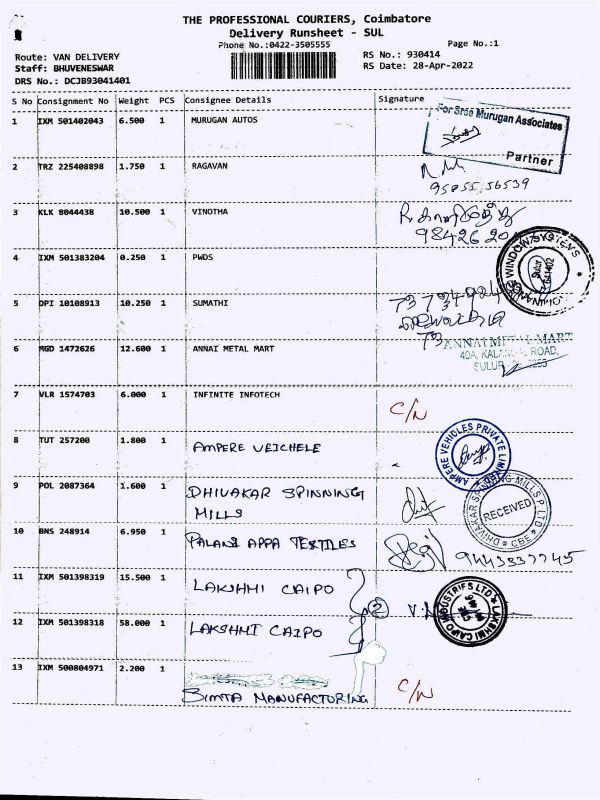 THE PROFESSIONAL COURIERS, Coimbatore
Delivery Runsheet - SUL
Phone No.:0422-3505555
Page No.:1
Route: VAN DELIVERY
RS No.: 930414
Staff: BHUVENESWAR
RS Date: 28-Apr-2022
DRS No.: DCJB93041401
S No Consignment No Weight PCS Consignee Details Signature
1 IXM 501402043 6.500 1 MURUGAN AUTOS
For Sree Murugan Associates
Partner
2 TRZ 225408898 1.750 1 RAGAVAN
95855 56539
3 KLK 8044438 10.500 1 VINOTHA
98426 20
4 IXM 501383204 0.250 1 PWDS
WINDOW SYSTEMS
5 DPI 10108913 10.250 1 SUMATHI
6 MGD 1472626 12.600 1 ANNAI METAL MART
ANNAI METAL MART
ROAD,
SULUR
7 VLR 1574703 6.000 1 INFINITE INFOTECH
C/N
8 TUT 257200 1.800 1 AMPERE VEICHELE
AMPERE VEHICLES PRIVATE LIMITED
9 POL 2087364 1.600 1 DHIVAKAR SPINNING
MILLS
DHIVAKAR SPINNING MILLS P LTD
RECEIVED
CBE
10 BNS 248914 6.950 1 PALANI APPA TEXTILES
9443337745
11 IXM 501398319 15.500 1 LAKSHMI CAIPO
2
LAKSHMI CAIPO INDUSTRIES LTD
12 IXM 501398318 58.000 1 LAKSHMI CAIPO
13 IXM 500804971 2.200 1
SIMTA MANUFACTURING
C/N